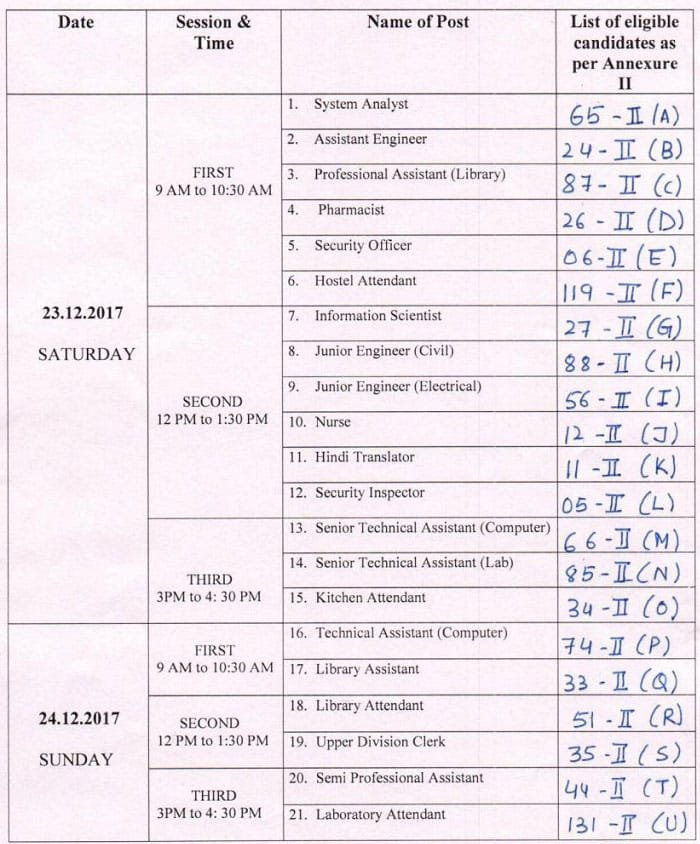 Date
Session & Time
Name of Post
List of eligible candidates as per Annexure II
23.12.2017
SATURDAY
FIRST
9 AM to 10:30 AM
1. System Analyst 65 - II (A)
2. Assistant Engineer 24 - II (B)
3. Professional Assistant (Library) 87 - II (C)
4. Pharmacist 26 - II (D)
5. Security Officer 06 - II (E)
6. Hostel Attendant 119 - II (F)
SECOND
12 PM to 1:30 PM
7. Information Scientist 27 - II (G)
8. Junior Engineer (Civil) 88 - II (H)
9. Junior Engineer (Electrical) 56 - II (I)
10. Nurse 12 - II (J)
11. Hindi Translator 11 - II (K)
12. Security Inspector 05 - II (L)
THIRD
3PM to 4: 30 PM
13. Senior Technical Assistant (Computer) 66 - II (M)
14. Senior Technical Assistant (Lab) 85 - II (N)
15. Kitchen Attendant 34 - II (O)
24.12.2017
SUNDAY
FIRST
9 AM to 10:30 AM
16. Technical Assistant (Computer) 74 - II (P)
17. Library Assistant 33 - II (Q)
SECOND
12 PM to 1:30 PM
18. Library Attendant 51 - II (R)
19. Upper Division Clerk 35 - II (S)
THIRD
3PM to 4: 30 PM
20. Semi Professional Assistant 44 - II (T)
21. Laboratory Attendant 131 - II (U)